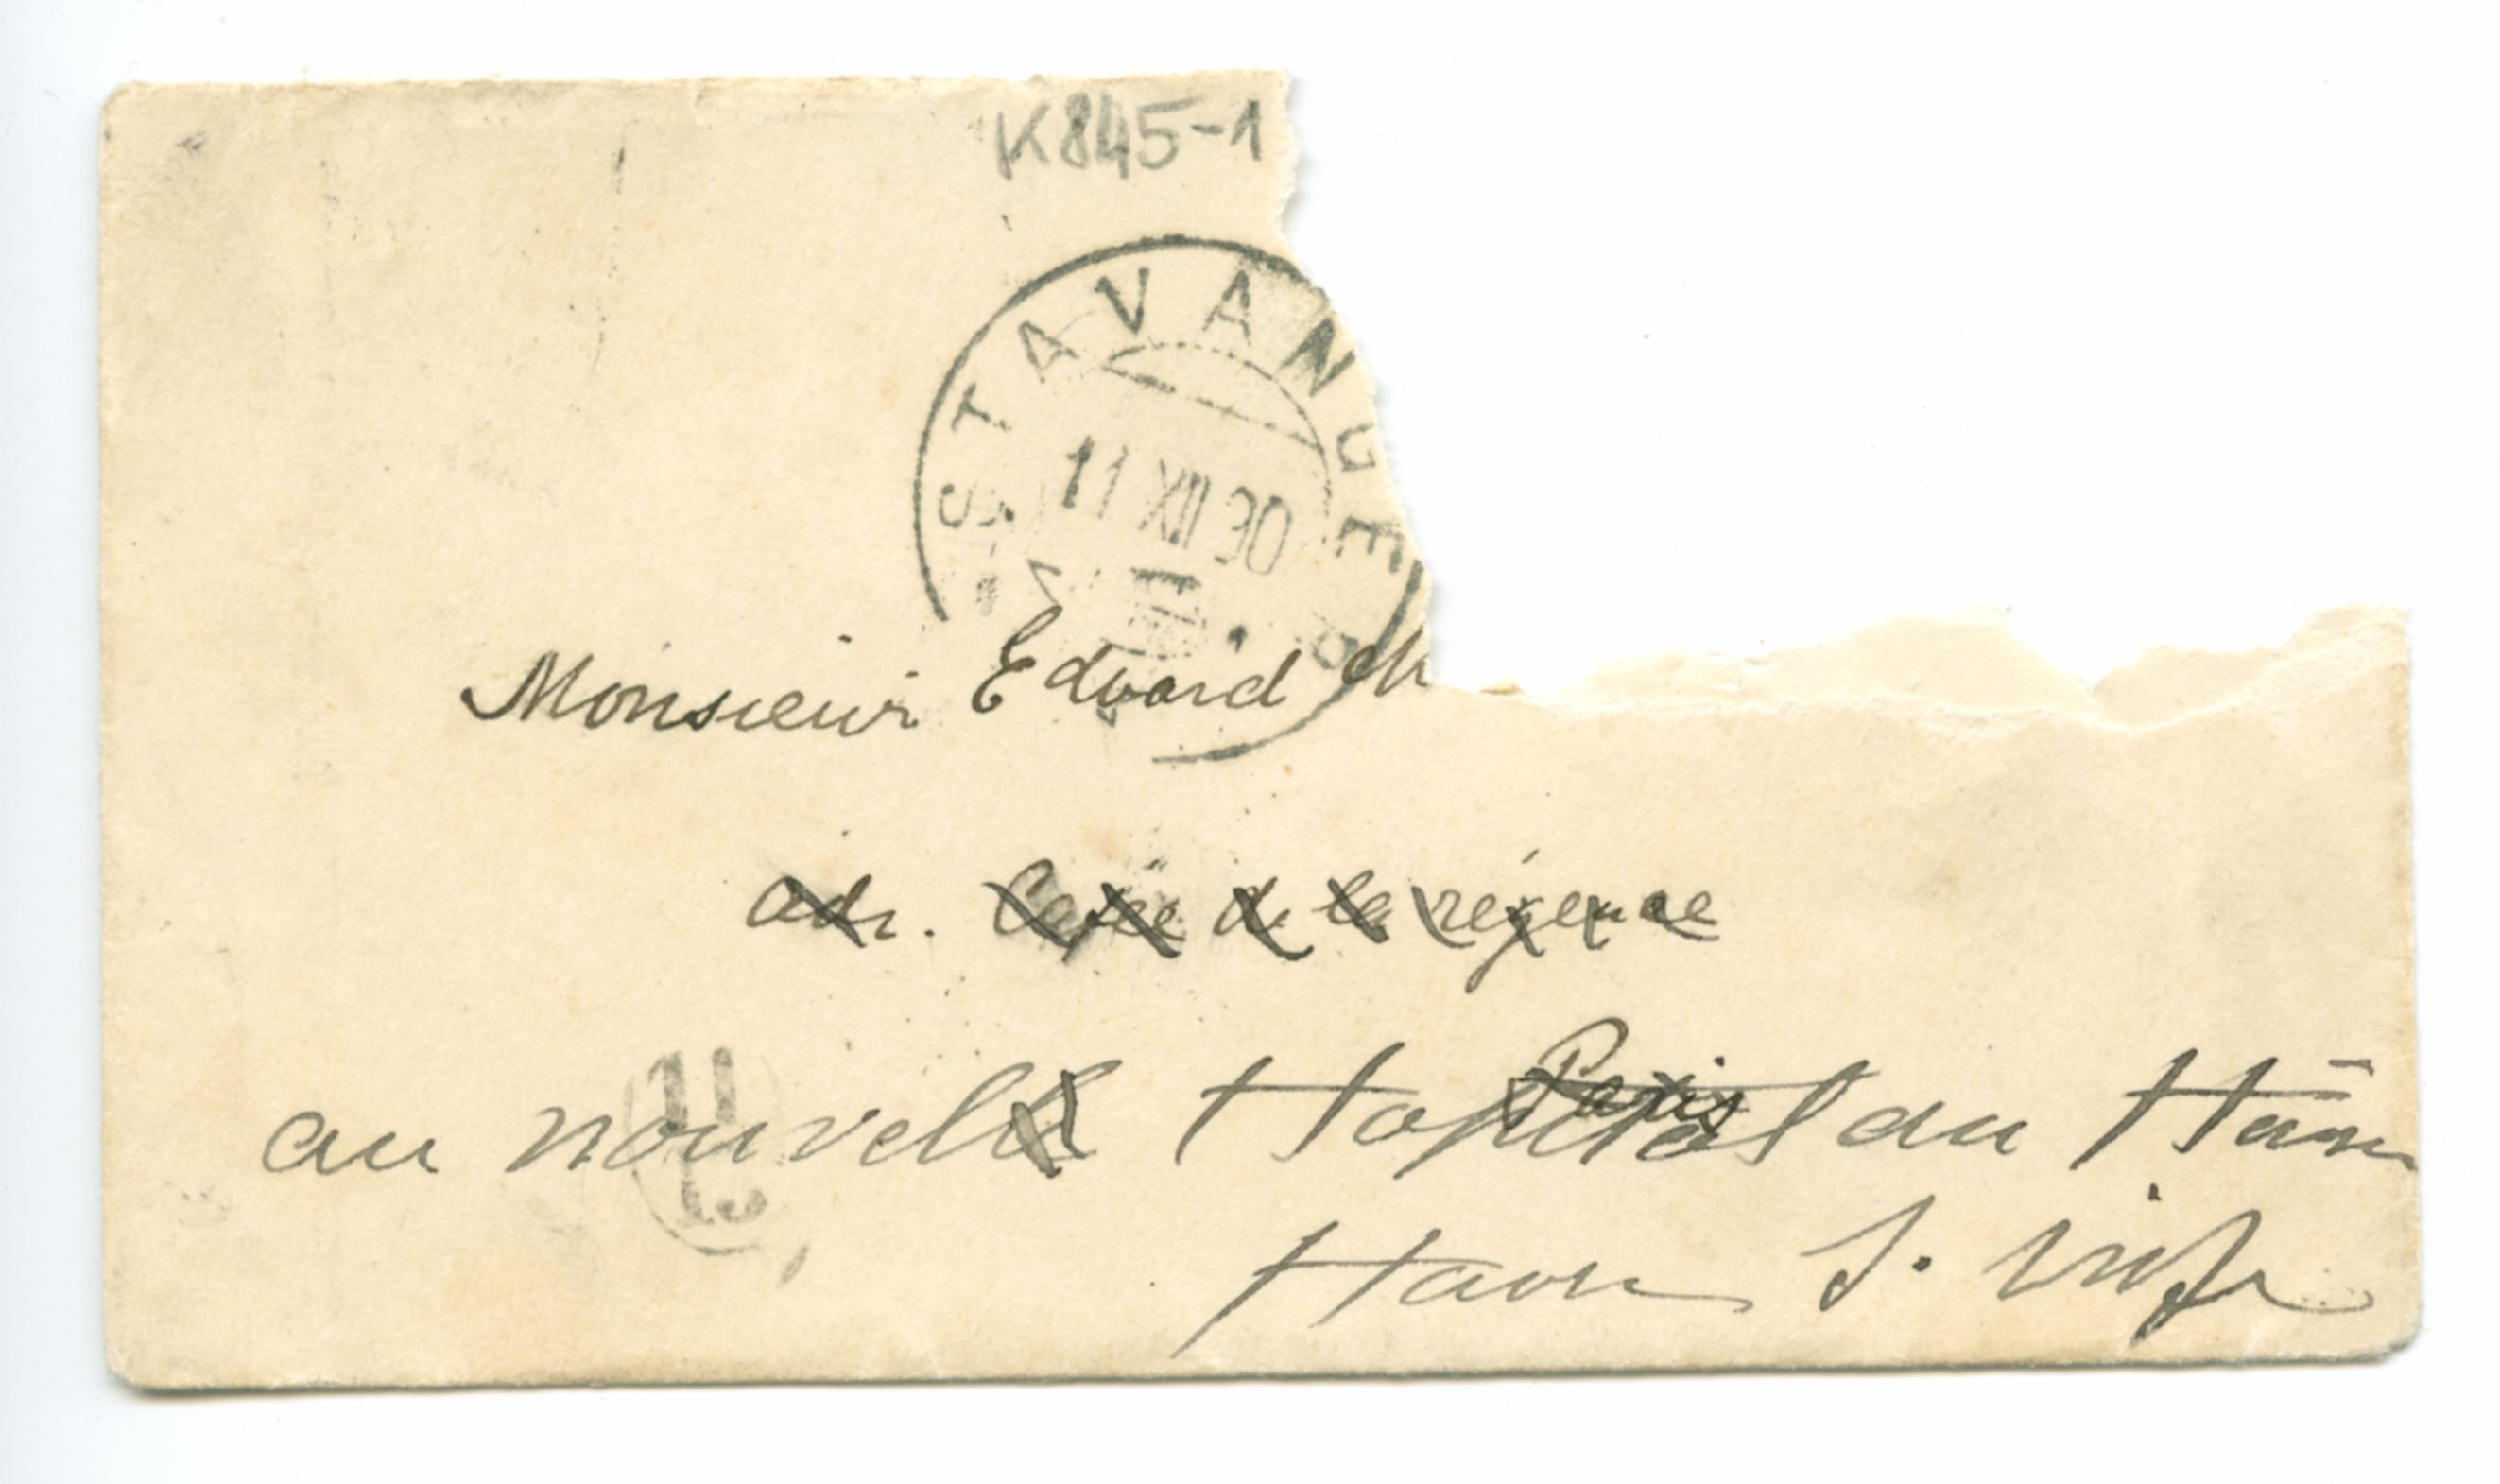 K845-1
STAVANGER
11 XII 90
Monsieur Edvard M
adr. Cafée de la régence
Paris
au nouvell Hopital du Hâvre
Havre S. Inf